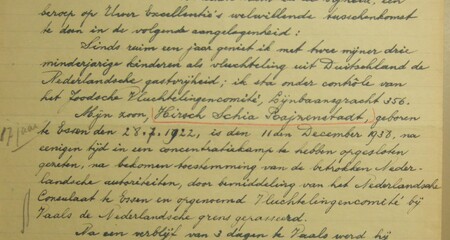 beroep op Uwer Excellentie's welwillende tusschenkomst
te doen in de volgende aangelegenheid:
Sinds ruim een jaar geniet ik met twee mijner drie
minderjarige kinderen als vluchteling uit Duitschland de
Nederlandsche gastvrijheid; ik sta onder contrôle van
het Joodsche Vluchtelingencomité, Lijnbaansgracht 366.
Mijn zoon, Hirsch Schia Rajzenstadt, geboren
17 jaar
te Essen den 28.7.1922, is den 11den December 1938, na
eenigen tijd in een concentratiekamp te hebben opgesloten
gezeten, na bekomen toestemming van de betrokken Neder-
landsche autoriteiten, door bemiddeling van het Nederlandsche
Consulaat te Essen en opgenoemd Vluchtelingencomité bij
Vaals de Nederlandsche grens gepasseerd.
Na een verblijf van 3 dagen te Vaals werd hij